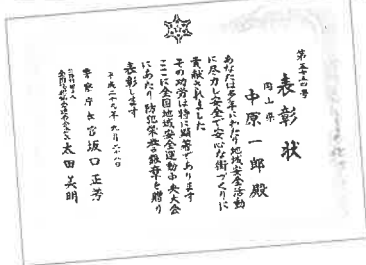 第五十四号
表彰状
岡山県
中原一郎殿
あなたは多年にわたり地域安全活動
に尽力し安全で安心な街づくりに
貢献されました
その功労は特に顕著であります
ここに全国地域安全運動中央大会
にあたり防犯栄誉銀章を贈り
表彰します
平成二十九年九月二十八日
警察庁長官坂口正芳
太田美明